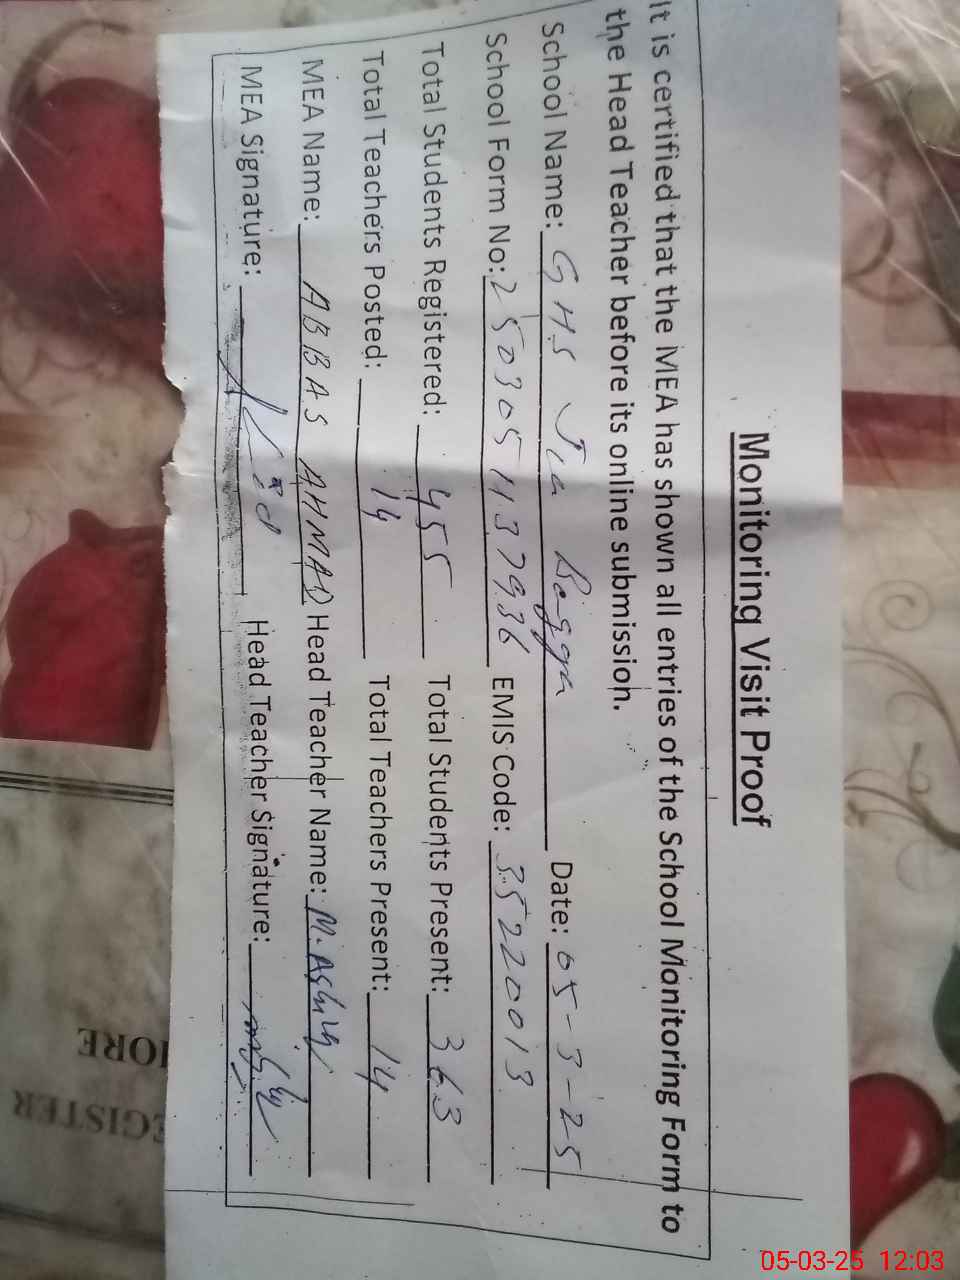 Monitoring Visit Proof
It is certified that the MEA has shown all entries of the School Monitoring Form to
the Head Teacher before its online submission.
School Name: GHS Jia Bagga Date: 05-3-25
School Form No: 2503051137936 EMIS Code: 35220013
Total Students Registered: 455 Total Students Present: 363
Total Teachers Posted: 14 Total Teachers Present: 14
MEA Name: ABBAS AHMAD Head Teacher Name: M.
MEA Signature: Head Teacher Signature:
EGISTER
05-03-25 12:03